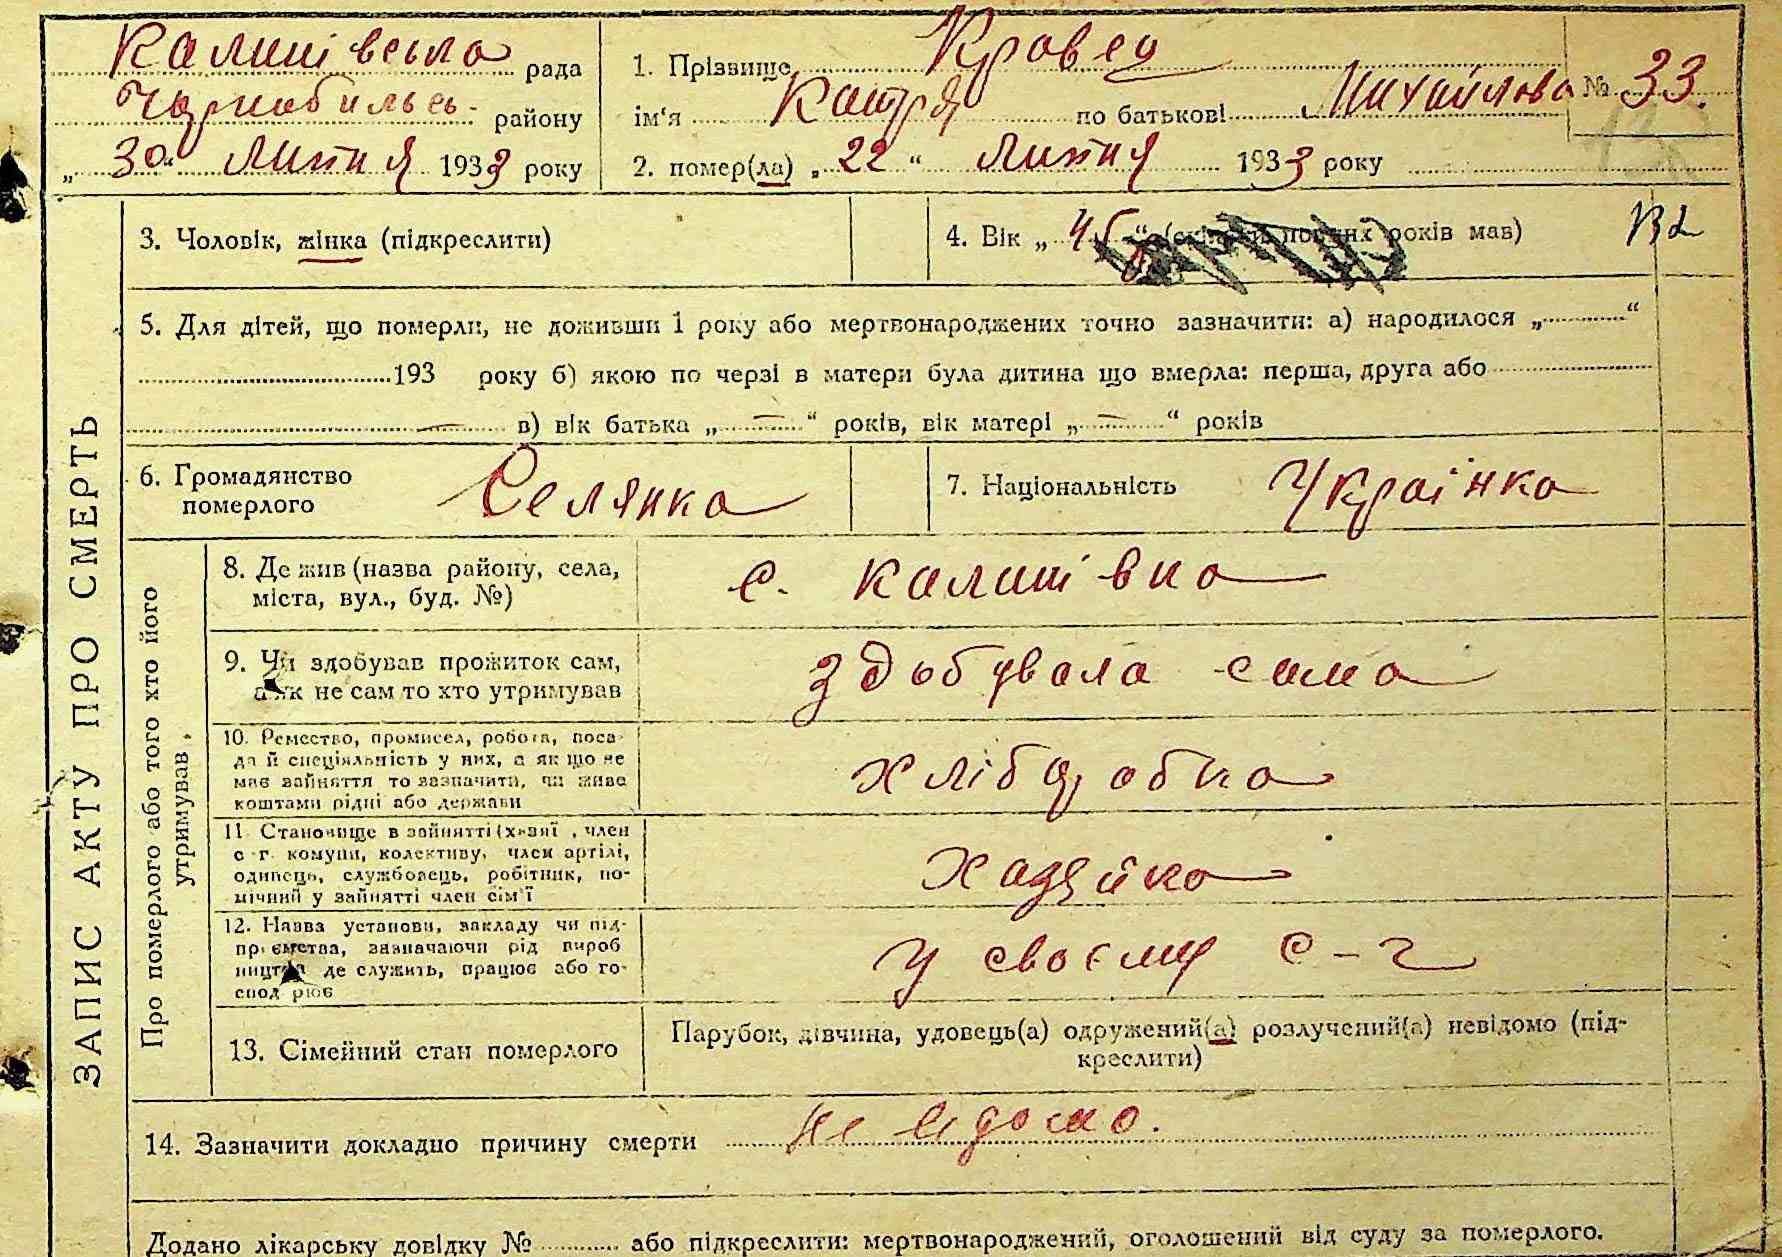 Калинівська рада
Чорнобильсь. району
„ 30 “ Липня 1933 року
1. Прізвище Кравец
ім'я Катря по батькові Михайлова № 33.
2. помер(ла) „ 22 “ Липня 1933 року
3. Чоловік, жінка (підкреслити)
4. Вік „ 45 “ років мав)
5. Для дітей, що померли, не доживши 1 року або мертвонароджених точно зазначити: а) народилося „ “
193 року б) якою по черзі в матери була дитина що вмерла: перша, друга або
— в) вік батька „ — “ років, вік матері „ — “ років
6. Громадянство
померлого
Селянка
7. Національність Українка
ЗАПИС АКТУ ПРО СМЕРТЬ
Про померлого або того хто його
утримував
8. Де жив (назва району, села,
міста, вул., буд. №)
с. Калинівка
9. Чи здобував прожиток сам,
а як не сам то хто утримував
здобувала сама
10. Ремество, промисел, робота, поса-
да й спеціяльність у них, а як що не
має зайняття то зазначити, чи живе
коштами рідні або держави
хлібробка
11. Становище в зайнятті (хазяї, член
с-г. комуни, колективу, член артілі,
одинець, службовець, робітник, по-
мічний у зайнятті член сім'ї
хазяйка
12. Назва установи, закладу чи під-
приємства, зазначаючи рід вироб
ництва де служить, працює або го-
сподарює
у своєму с-г
13. Сімейний стан померлого
Парубок, дівчина, удовець(а) одружений(а) розлучений(а) невідомо (під-
креслити)
14. Зазначити докладно причину смерти не відомо.
Додано лікарську довідку № або підкреслити: мертвонароджений, оголошений від суду за померлого.